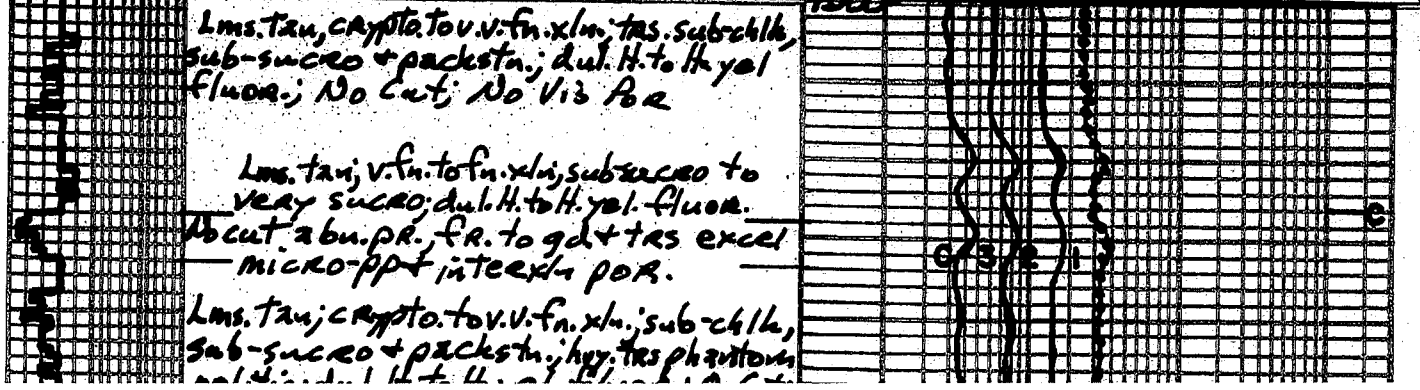 Lms. tan, crypto. to v.v.fn. xln; trs. sub-chlk,
sub-sucro & packstn.; dul. lt. to lt. yel
fluor.; No Cut; No Vis Por
Lms. tan; v.fn. to fn. xln; sub-sucro to
very sucro; dul. lt. to lt. yel. fluor.
No cut abu. pr., fr. to gd & trs excel
micro-pp & interxln por.
C 3 2 1
C
Lms. tan; crypto. to v.v.fn. xln.; sub-chlk,
sub-sucro & packstn.; hvy. trs phantom